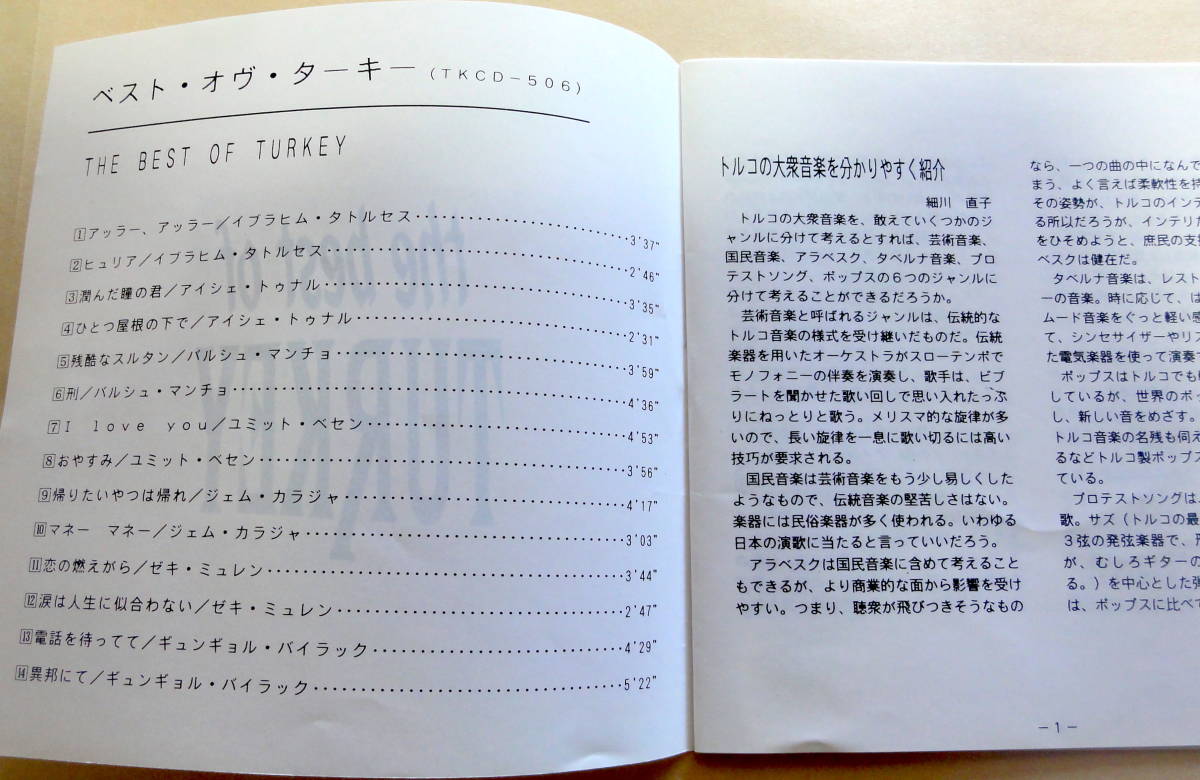 ベスト・オヴ・ターキー (TKCD-506)
THE BEST OF TURKEY
1アッラー、アッラー/イブラヒム・タトルセス 3'37"
2ヒュリア/イブラヒム・タトルセス 2'46"
3潤んだ瞳の君/アイシェ・トゥナル 3'35"
4ひとつ屋根の下で/アイシェ・トゥナル 2'31"
5残酷なスルタン/バルシュ・マンチョ 3'59"
6刑/バルシュ・マンチョ 4'36"
7I love you/ユミット・ベセン 4'53"
8おやすみ/ユミット・ベセン 3'56"
9帰りたいやつは帰れ/ジェム・カラジャ 4'17"
10マネー マネー/ジェム・カラジャ 3'03"
11恋の燃えがら/ゼキ・ミュレン 3'44"
12涙は人生に似合わない/ゼキ・ミュレン 2'47"
13電話を待ってて/ギュンギョル・バイラック 4'29"
14異邦にて/ギュンギョル・バイラック 5'22"
the best of
TURKEY
トルコの大衆音楽を分かりやすく紹介
細川 直子
トルコの大衆音楽を、敢えていくつかのジ
ャンルに分けて考えるとすれば、芸術音楽、
国民音楽、アラベスク、タベルナ音楽、プロ
テストソング、ポップスの6つのジャンルに
分けて考えることができるだろうか。
芸術音楽と呼ばれるジャンルは、伝統的な
トルコ音楽の様式を受け継いだものだ。伝統
楽器を用いたオーケストラがスローテンポで
モノフォニーの伴奏を演奏し、歌手は、ビブ
ラートを聞かせた歌い回しで思い入れたっぷ
りにねっとりと歌う。メリスマ的な旋律が多
いので、長い旋律を一息に歌い切るには高い
技巧が要求される。
国民音楽は芸術音楽をもう少し易しくした
ようなもので、伝統音楽の堅苦しさはない。
楽器には民俗楽器が多く使われる。いわゆる
日本の演歌に当たると言っていいだろう。
アラベスクは国民音楽に含めて考えること
もできるが、より商業的な面から影響を受け
やすい。つまり、聴衆が飛びつきそうなもの
なら、一つの曲の中になんで
まう、よく言えば柔軟性を持
その姿勢が、トルコのインテ
る所以だろうが、インテリた
をひそめようと、庶民の支持
ベスクは健在だ。
タベルナ音楽は、レスト
ーの音楽。時に応じて、は
ムード音楽をぐっと軽い感
て、シンセサイザーやリズ
た電気楽器を使って演奏
ポップスはトルコでも
しているが、世界のポッ
し、新しい音をめざす。
トルコ音楽の名残も伺え
るなどトルコ製ポップス
ている。
プロテストソングは、
歌。サズ（トルコの最
3弦の発弦楽器で、形
が、むしろギターの
る。）を中心とした弾
は、ポップスに比べて
-1-